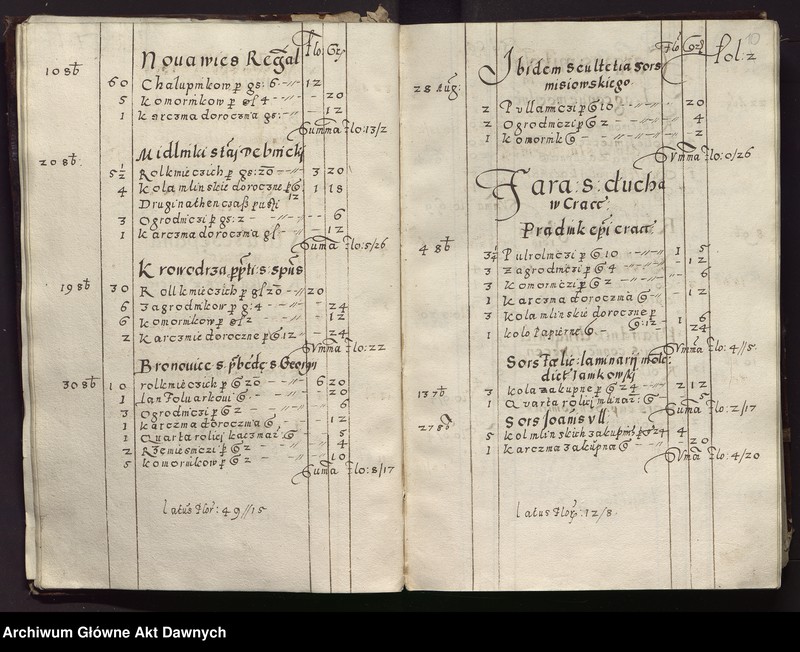 Nova wies Regal Flo: Gr:
10 8b
60 Chalupnikow p gs: 6 12
5 Komornikow p gl 4 20
1 Karczma doroczna gs: 12
Summa Flo: 13/2
Midlniki staj Debnicki
20 8b
5½ Rol kmieczich p gs: 20 3 20
4 Kola mlinskie doroczne p G 1 18
Drugi na then czas pusti 12
3 Ogrodniczi p gs: 2 6
1 Karczma doroczna gl 12
Suma Flo: 5/26
Krowodrza ppti: s: spus
19 8b
30 Roll kmieczich p gl 20 20
6 Zagrodnikow p g: 4 24
6 Komornikow p gl 2 12
2 Karczmie doroczne p G 12 24
Summa Flo: 22
Bronowice s. pbede s Georgy
30 8b
10 rol kmieczich p G 20 6 20
1 Lan Folvarkovi G 20
3 Ogrodniczi p G 2 6
1 Karczma doroczna G 12
1 Quarta roliej kaczmar: G 5
2 Rzemiesniczi p G 2 4
5 Komornikow p G 2 10
Suma Flo: 8/17
latus Flor: 49//15
Flo Grs Fol: 2
10
Ibidem scultetia sors
misiowskiego
28 Aug:
2 Pullanniczi p G 10 20
2 Ogrodniczi p G 2 4
1 Komornik G 2
Summa Flo: 0/26
Fara: s: ducha
w Crace
Pradnik epi crace
4 8b
3¼ Pulrolniczi p G 10 1 5
3 Zagrodniczi p G 4 12
3 Komorniczi p G 2 6
1 Karczma doroczna G 12
3 Kola mlinskie doroczne p
G: 12 1 6
1 kolo Papierne G 24
Summa Flo: 4//5
Sors Fælic: laminarij mole:
dict Jamkowskj
13 7b
3 Kola zakupne p G 24 2 12
1 Quarta roliej mlinar: G 5
Suma Flo: 2/17
Sors Joanis vll
27 8b
5 kol mlinskich zakupnich p G 24 4
1 Karczma zakupna G 20
Summa Flo: 4/20
latus Flor: 12/8
Archiwum Główne Akt Dawnych